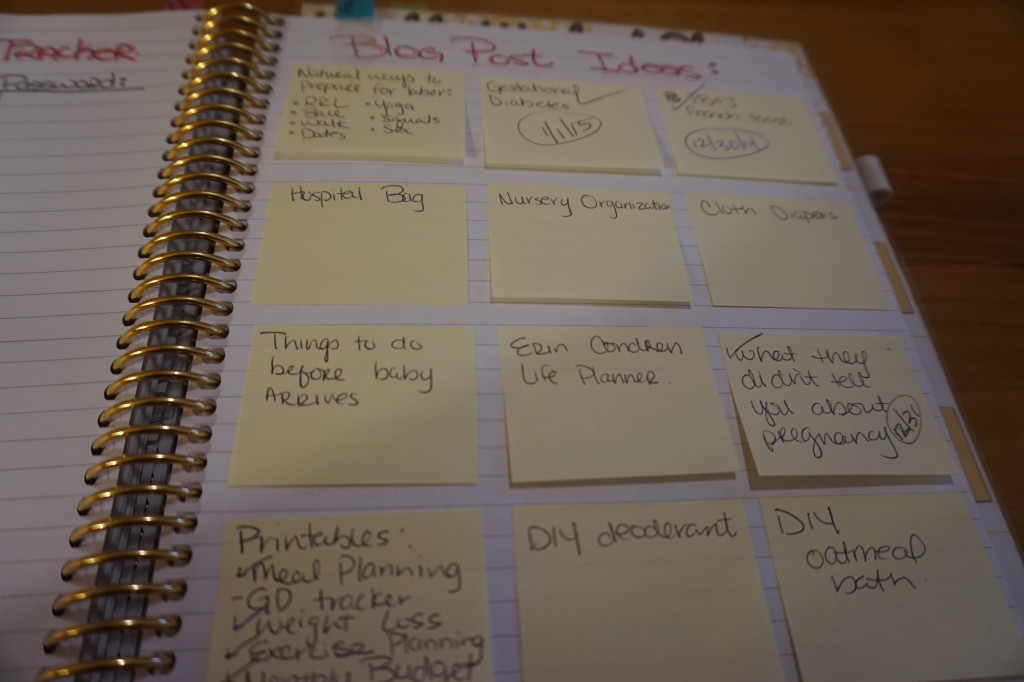 Tracker
Password:
Blog Post Ideas:
Natural ways to
prepare for labor:
• RRL • Yoga
• Ball • Squats
• Walk • Sex
• Dates
Gestational
Diabetes ✓
1/1/15
French
Hospital Bag
Nursery Organization
Cloth Diapers
Things to do
before baby
ARRIVES
Erin Condren
Life Planner.
✓What they
didn't tell
you about
pregnancy 12/31
Printables:
✓Meal Planning
-GD tracker
✓Weight Loss
✓Exercise Planning
Budget
DIY deoderant
DIY
oatmeal
bath.